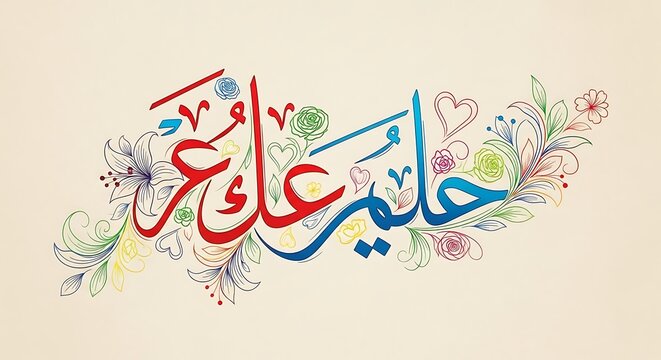 حليم علك عر